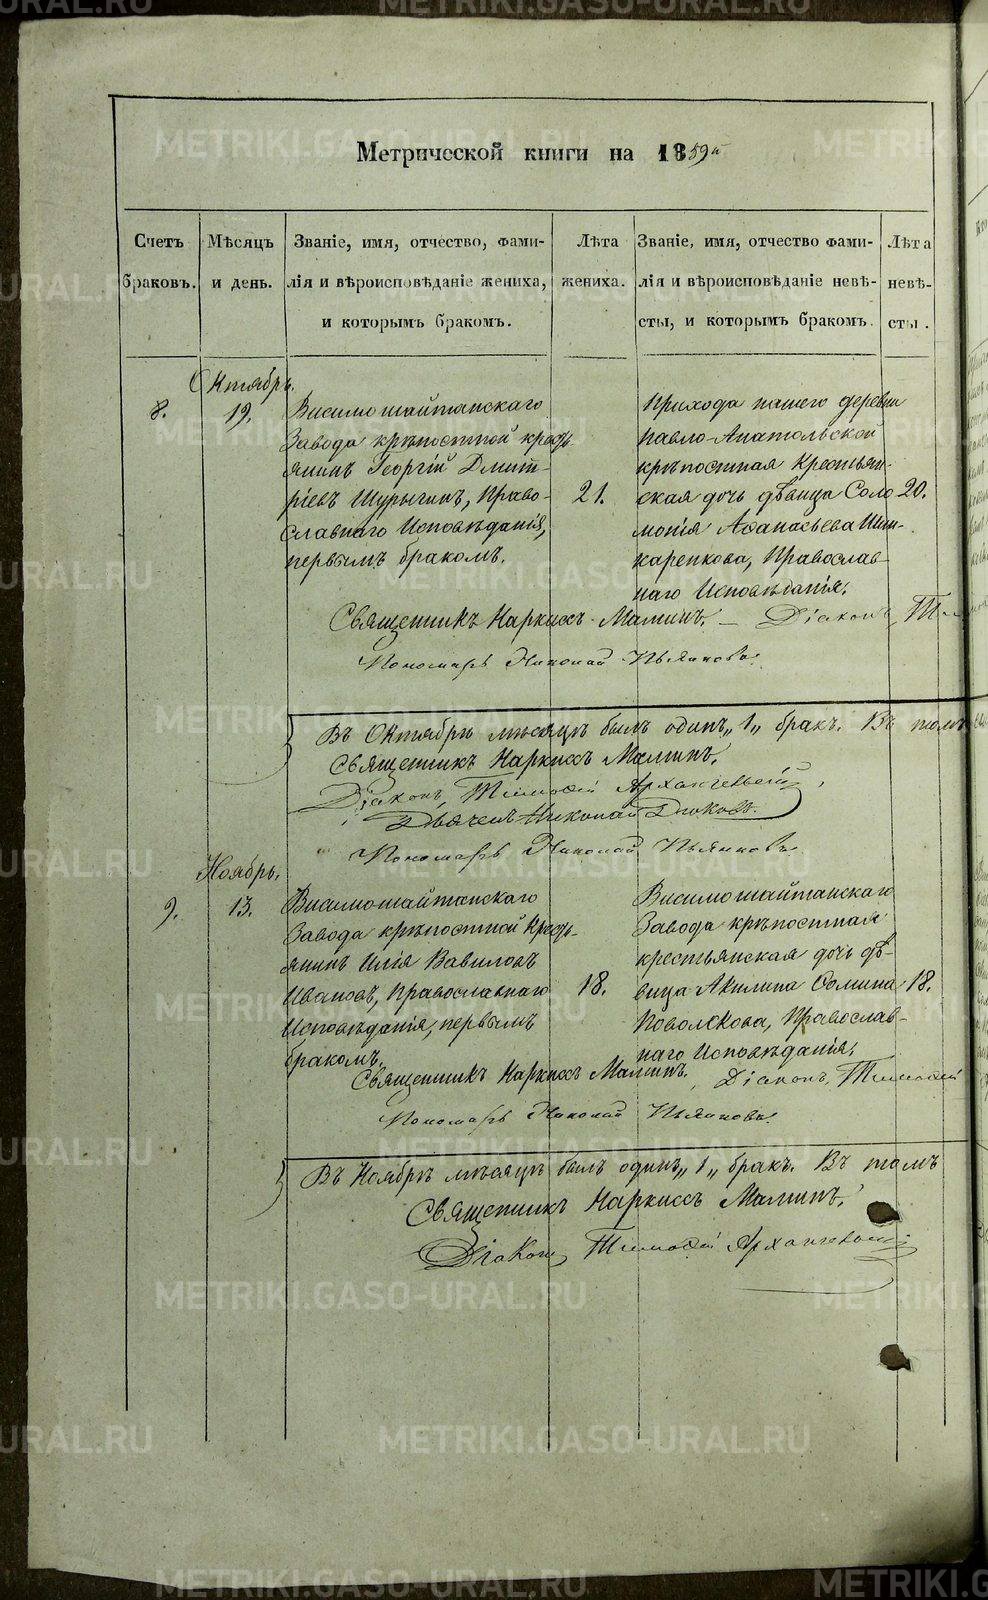 Метрической книги на 1859й
Счетъ браковъ.
Мѣсяцъ и день.
Званіе, имя, отчество, фами-
лія и вѣроисповѣданіе жениха,
и которымъ бракомъ.
Лѣта жениха.
Званіе, имя, отчество фами-
лія и вѣроисповѣданіе невѣ-
сты, и которымъ бракомъ.
Лѣта невѣ-
сты.
Октябрь.
8.
19.
Висимошайтанскаго
Завода крѣпостной кресть
янинъ Георгій Дмит-
ріевъ Шурыгинъ, Право-
славнаго Исповѣданія,
первымъ бракомъ.
21.
Прихода нашего деревни
Павло-Анатольской
крѣпостная Крестьян-
ская дочь дѣвица Соло
монія Аѳанасьева Шин-
каренкова, Православ-
наго Исповѣданія.
20.
Священникъ Наркисъ Маминъ. – Діаконъ
Пономарь Николай Пьянковъ.
Въ Октябрѣ мѣсяцѣ былъ одинъ „1„ бракъ. Въ томъ
Священникъ Наркисъ Маминъ.
Діаконъ, Тимоѳей Архангельскій
Дьячекъ Николай Дюковъ.
Пономарь Николай Пьянковъ
Ноябрь.
9.
13.
Висимошайтанскаго
Завода крѣпостной Кресть-
янинъ Илія Вавиловъ
Ивановъ, Православнаго
Исповѣданія, первымъ
бракомъ.
18.
Висимошайтанскаго
Завода крѣпостная
крестьянская дочь дѣ-
вица Акилина Сомина
Поволскова, Православ-
наго Исповѣданія.
18.
Священникъ Наркисъ Маминъ. Діаконъ, Тимоѳей
Пономарь Николай Пьянковъ.
Въ Ноябрѣ мѣсяцѣ былъ одинъ „1„ бракъ. Въ томъ
Священникъ Наркисъ Маминъ.
Діаконъ Тимоѳей Архангельскій
METRIKI.GASO-URAL.RU